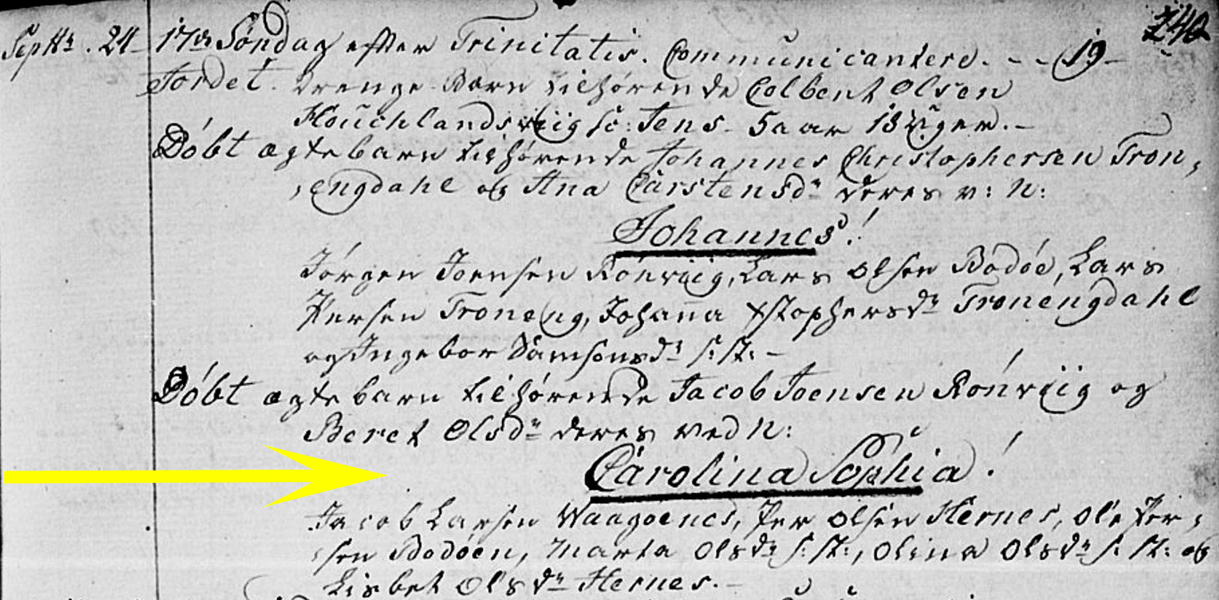 240
Septbr. 24 17de Søndag efter Trinitatis. Communicantere. - - 19 -
Jordet. Drenge Barn tilhørende Colbent Olsen
Houchlandsviig sc: Jens - 5 aar 13 uger. -
Døbt ægte barn tilhørende Johannes Christophersen Tron,
,engdahl og Ana Carstensdr deres v: n:
Johannes!
Jørgen Joensen Rønviig, Lars Olsen Bodøe, Lars
Iversen Troneng, Johana Xstophersdr Tronengdahl
og Ingebor Samsonsdr s: st: -
Døbt ægte barn tilhørende Jacob Joensen Rønviig og
Beret Olsdr deres ved n:
Carolina Sophia!
Jacob Larsen Waagoenes, Per Olsen Hernes, Ole Per,
,sen Bodøen, Marta Olsdr s: st:, Olina Olsdr s: st: og
Lisbet Olsdr Hernes. -